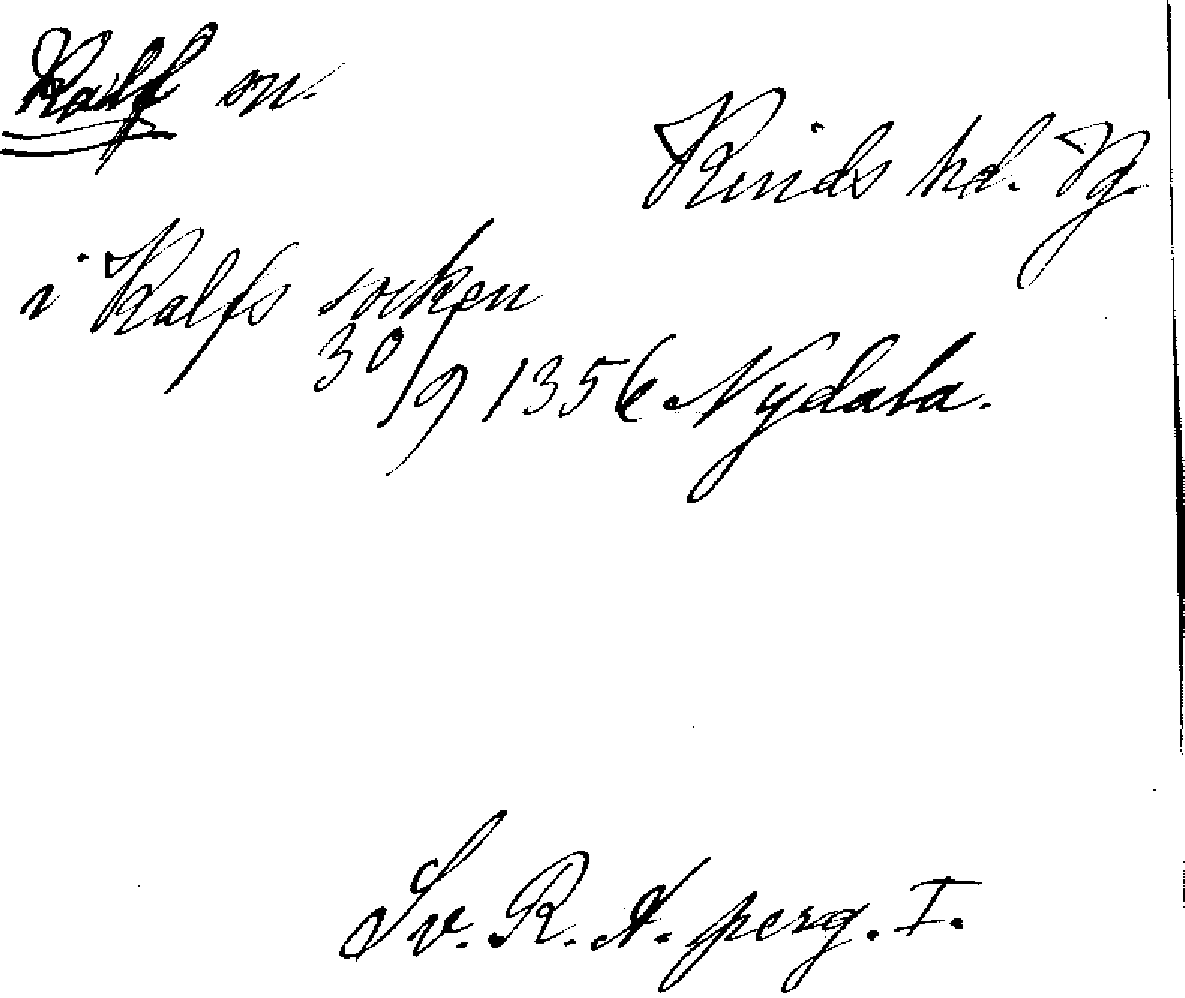 Kalf sn.
Kinds hd. Vg.
i Kalfs socken
30/9 1356 Nydala.
Sv. R. A. perg. I.